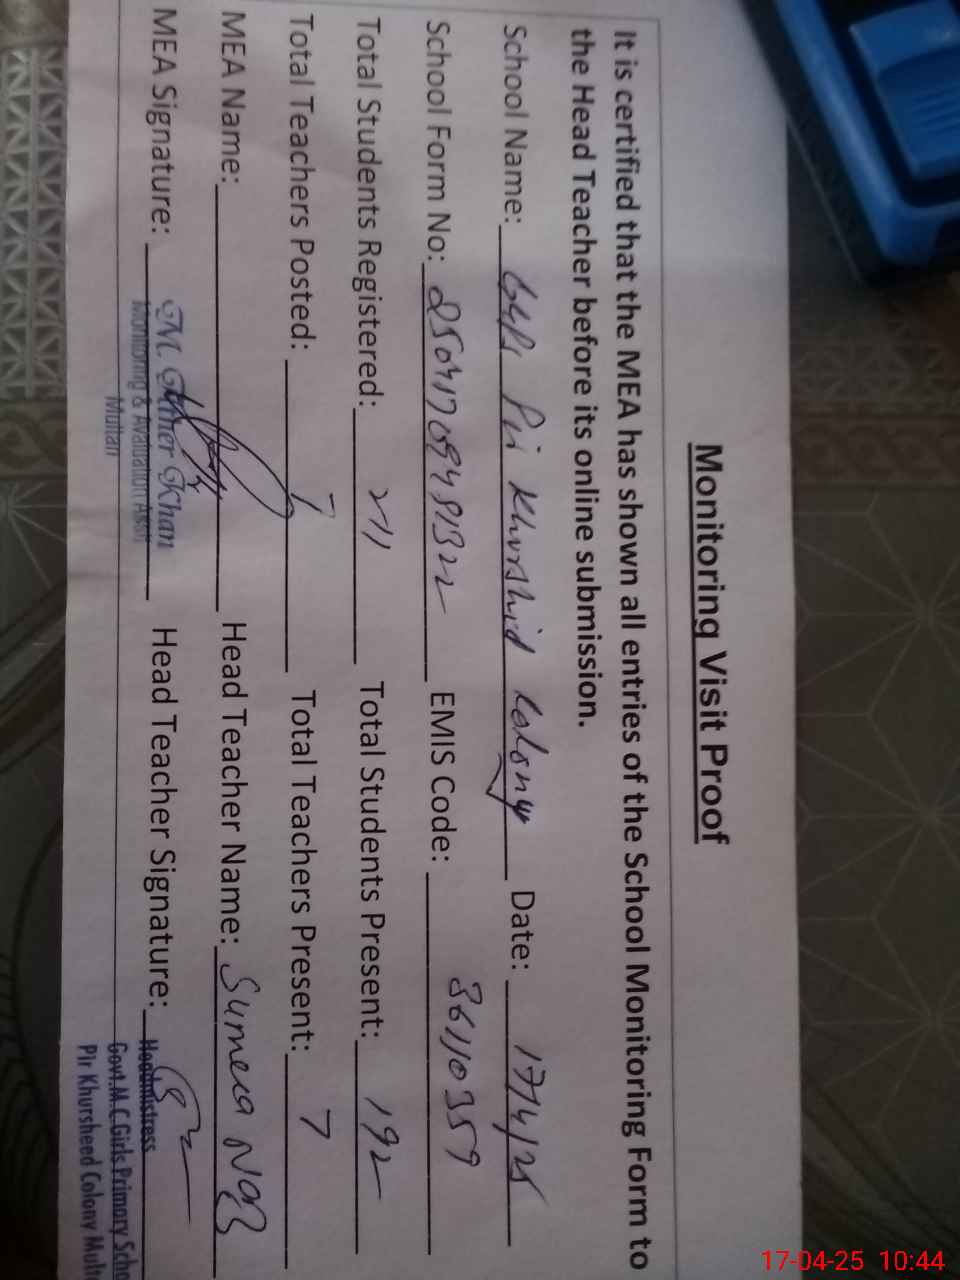 Monitoring Visit Proof
It is certified that the MEA has shown all entries of the School Monitoring Form to
the Head Teacher before its online submission.
School Name: GGPS Pir Khurshid Colony Date: 17/4/25
School Form No: EMIS Code: 36110359
Total Students Registered: 211 Total Students Present: 192
Total Teachers Posted: 7 Total Teachers Present: 7
MEA Name: Head Teacher Name: Sumera Naz
MEA Signature: Head Teacher Signature:
Khan
Monitoring & Evaluation Asstt
Multan
Headmistress
Govt.M.C.Girls Primary Scho
Pir Khursheed Colony Mult
17-04-25 10:44